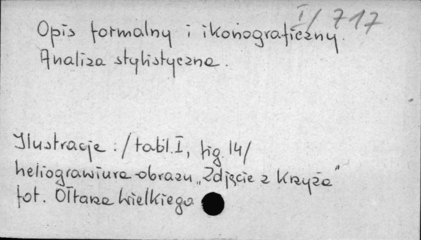 I/717
Opis formalny i ikonograficzny.
Analiza stylistyczna.
Ilustracje :/tabl.I, fig.14/
heliograwiura obrazu „Zdjęcie z Krzyża"
fot. Ołtarza Wielkiego